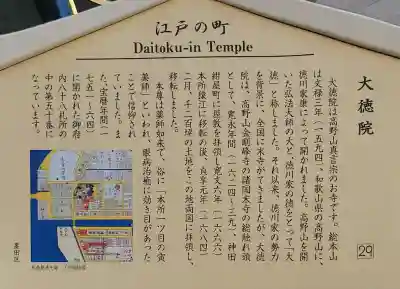 江戸の町
Daitoku-in Temple
大徳院
大徳院は高野山真言宗のお寺です。総本山
は文禄三年(一五九四)、和歌山県の高野山に、
徳川家康によって開かれました。高野山を開
いた弘法大師の大と、徳川家の徳をとって「大
徳」と称しました。それ以来、徳川家の勢力
を背景に、全国に末寺ができましたが、大徳
院は、高野山金剛峰寺の諸国末寺の総触れ頭
として、寛永年間(一六二四~三九)、神田
紺屋町に屋敷を拝領し寛文六年(一六六六)
本所猿江に移転の後、貞享元年(一六八四)
二月、千二百坪の土地をこの地両国に拝領し、
移転しました。
本尊は薬師如来で、俗に「本所一ツ目の寅
薬師」といわれ、眼病治癒に効き目があった
ことで信仰され
ていました。ま
た、宝暦年間(一
七五一~六四)
に開かれた御府
内八十八札所の
中の第五十番に
なっています。
29
墨田区